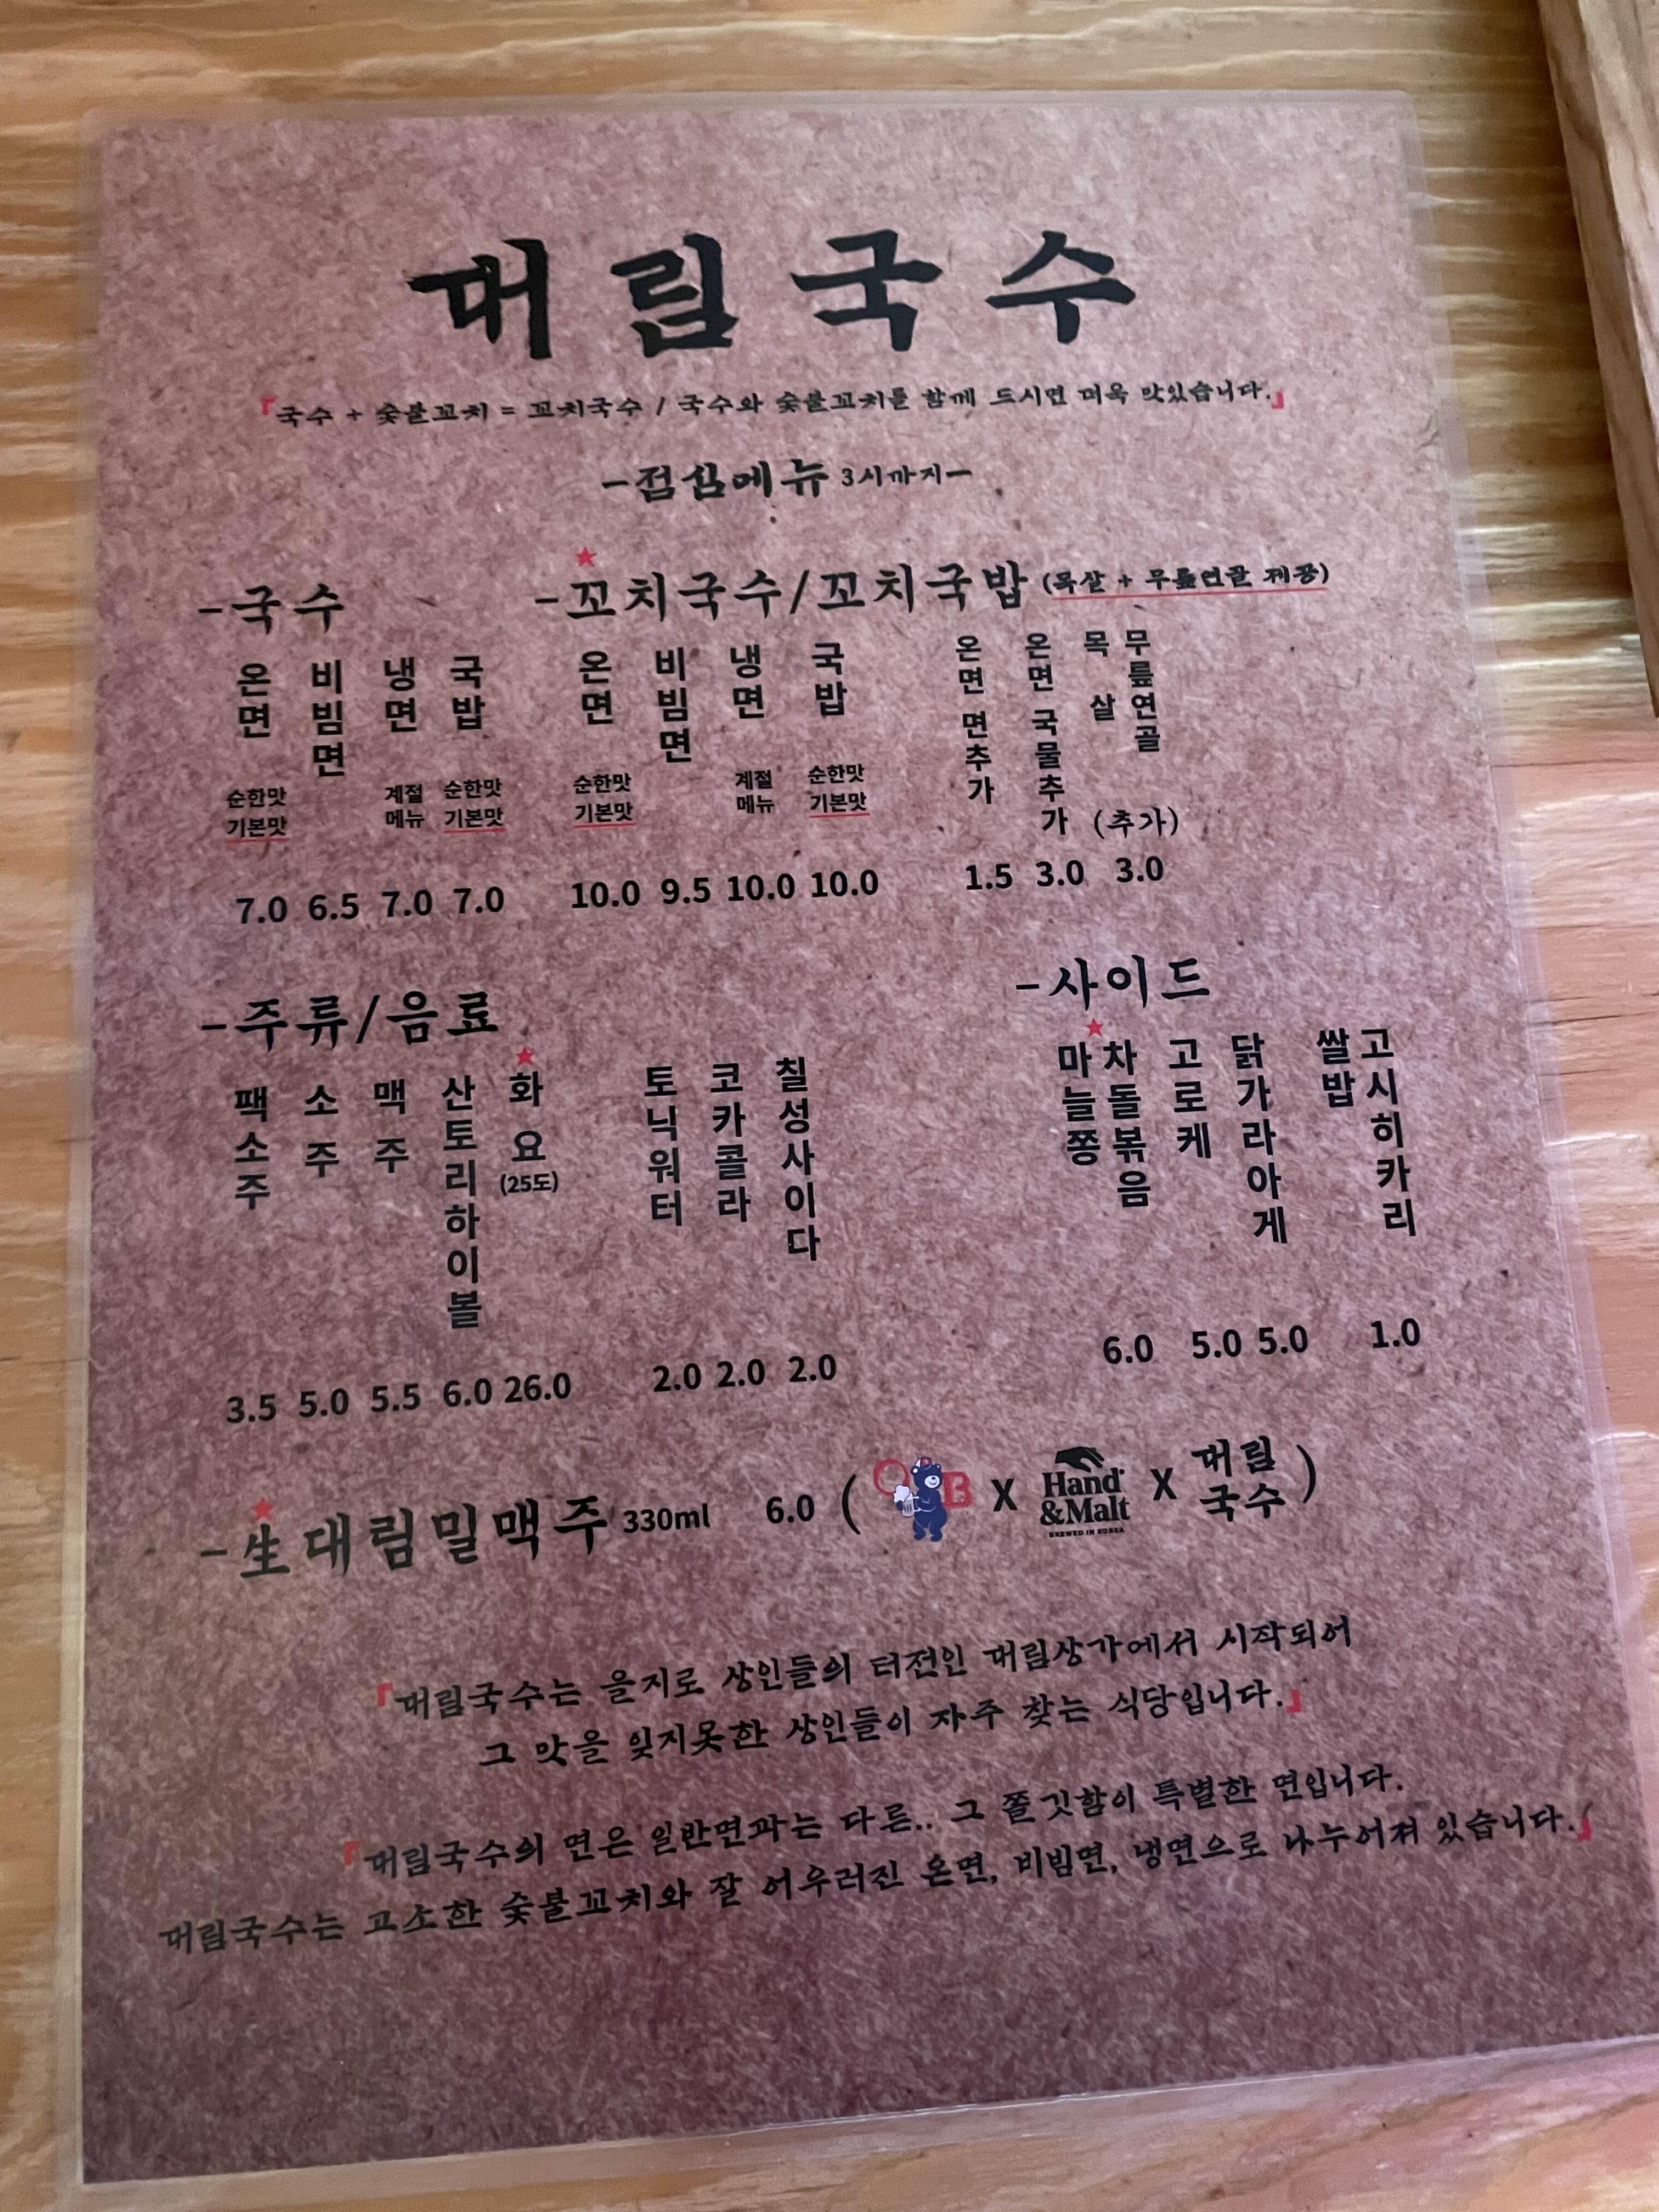 대림국수
『국수 + 숯불꼬치 = 꼬치국수 / 국수와 숯불꼬치를 함께 드시면 더욱 맛있습니다.』
-점심메뉴 3시까지-
-국수
온면 순한맛 기본맛 7.0
비빔면 6.5
냉면 계절메뉴 7.0
국밥 순한맛 기본맛 7.0
★
-꼬치국수/꼬치국밥 (목살 + 무릎연골 제공)
온면 순한맛 기본맛 10.0
비빔면 9.5
냉면 계절메뉴 10.0
국밥 순한맛 기본맛 10.0
온면 면추가 1.5
온면 국물추가 3.0
목살 무릎연골 (추가) 3.0
-주류/음료
팩소주 3.5
소주 5.0
맥주 5.5
산토리하이볼 6.0
★화요 (25도) 26.0
토닉워터 2.0
코카콜라 2.0
칠성사이다 2.0
-사이드
★마늘쫑 차돌볶음 6.0
고로케 5.0
닭가라아게 5.0
쌀밥 고시히카리 1.0
★
-生대림밀맥주 330ml 6.0 ( OB X Hand &Malt BREWED IN KOREA X 대림국수 )
『대림국수는 을지로 상인들의 터전인 대림상가에서 시작되어
그 맛을 잊지못한 상인들이 자주 찾는 식당입니다.』
『대림국수의 면은 일반면과는 다른.. 그 쫄깃함이 특별한 면입니다.
대림국수는 고소한 숯불꼬치와 잘 어우러진 온면, 비빔면, 냉면으로 나누어져 있습니다.』